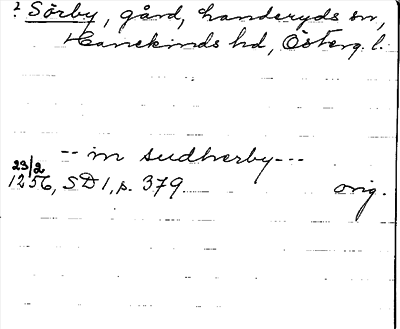 ? Sörby, gård, Landeryds sn,
Hanekinds hd, Österg. l.
-- in sudherby---
23/2
1256, SD 1, s. 379. orig.